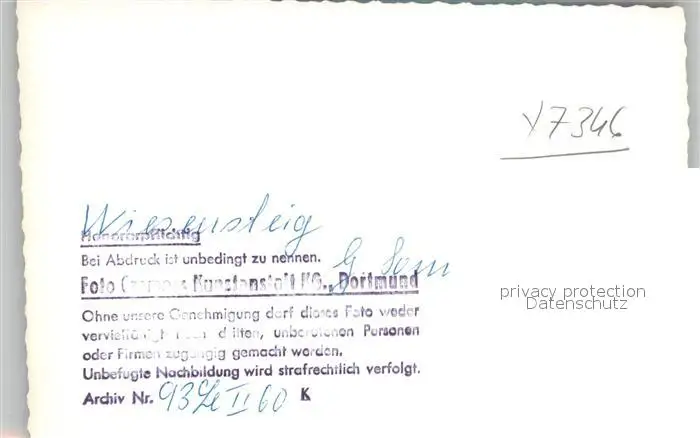 Y7346
Wiesensteig
Honorarpflichtig
Bei Abdruck ist unbedingt zu nennen.
Foto Kunstanstalt KG., Dortmund
privacy protection
Datenschutz
Ohne unsere Genehmigung darf dieses Foto weder
vervielfältigt noch dritten, unberufenen Personen
oder Firmen zugängig gemacht werden.
Unbefugte Nachbildung wird strafrechtlich verfolgt.
Archiv Nr. 93 II 60 K